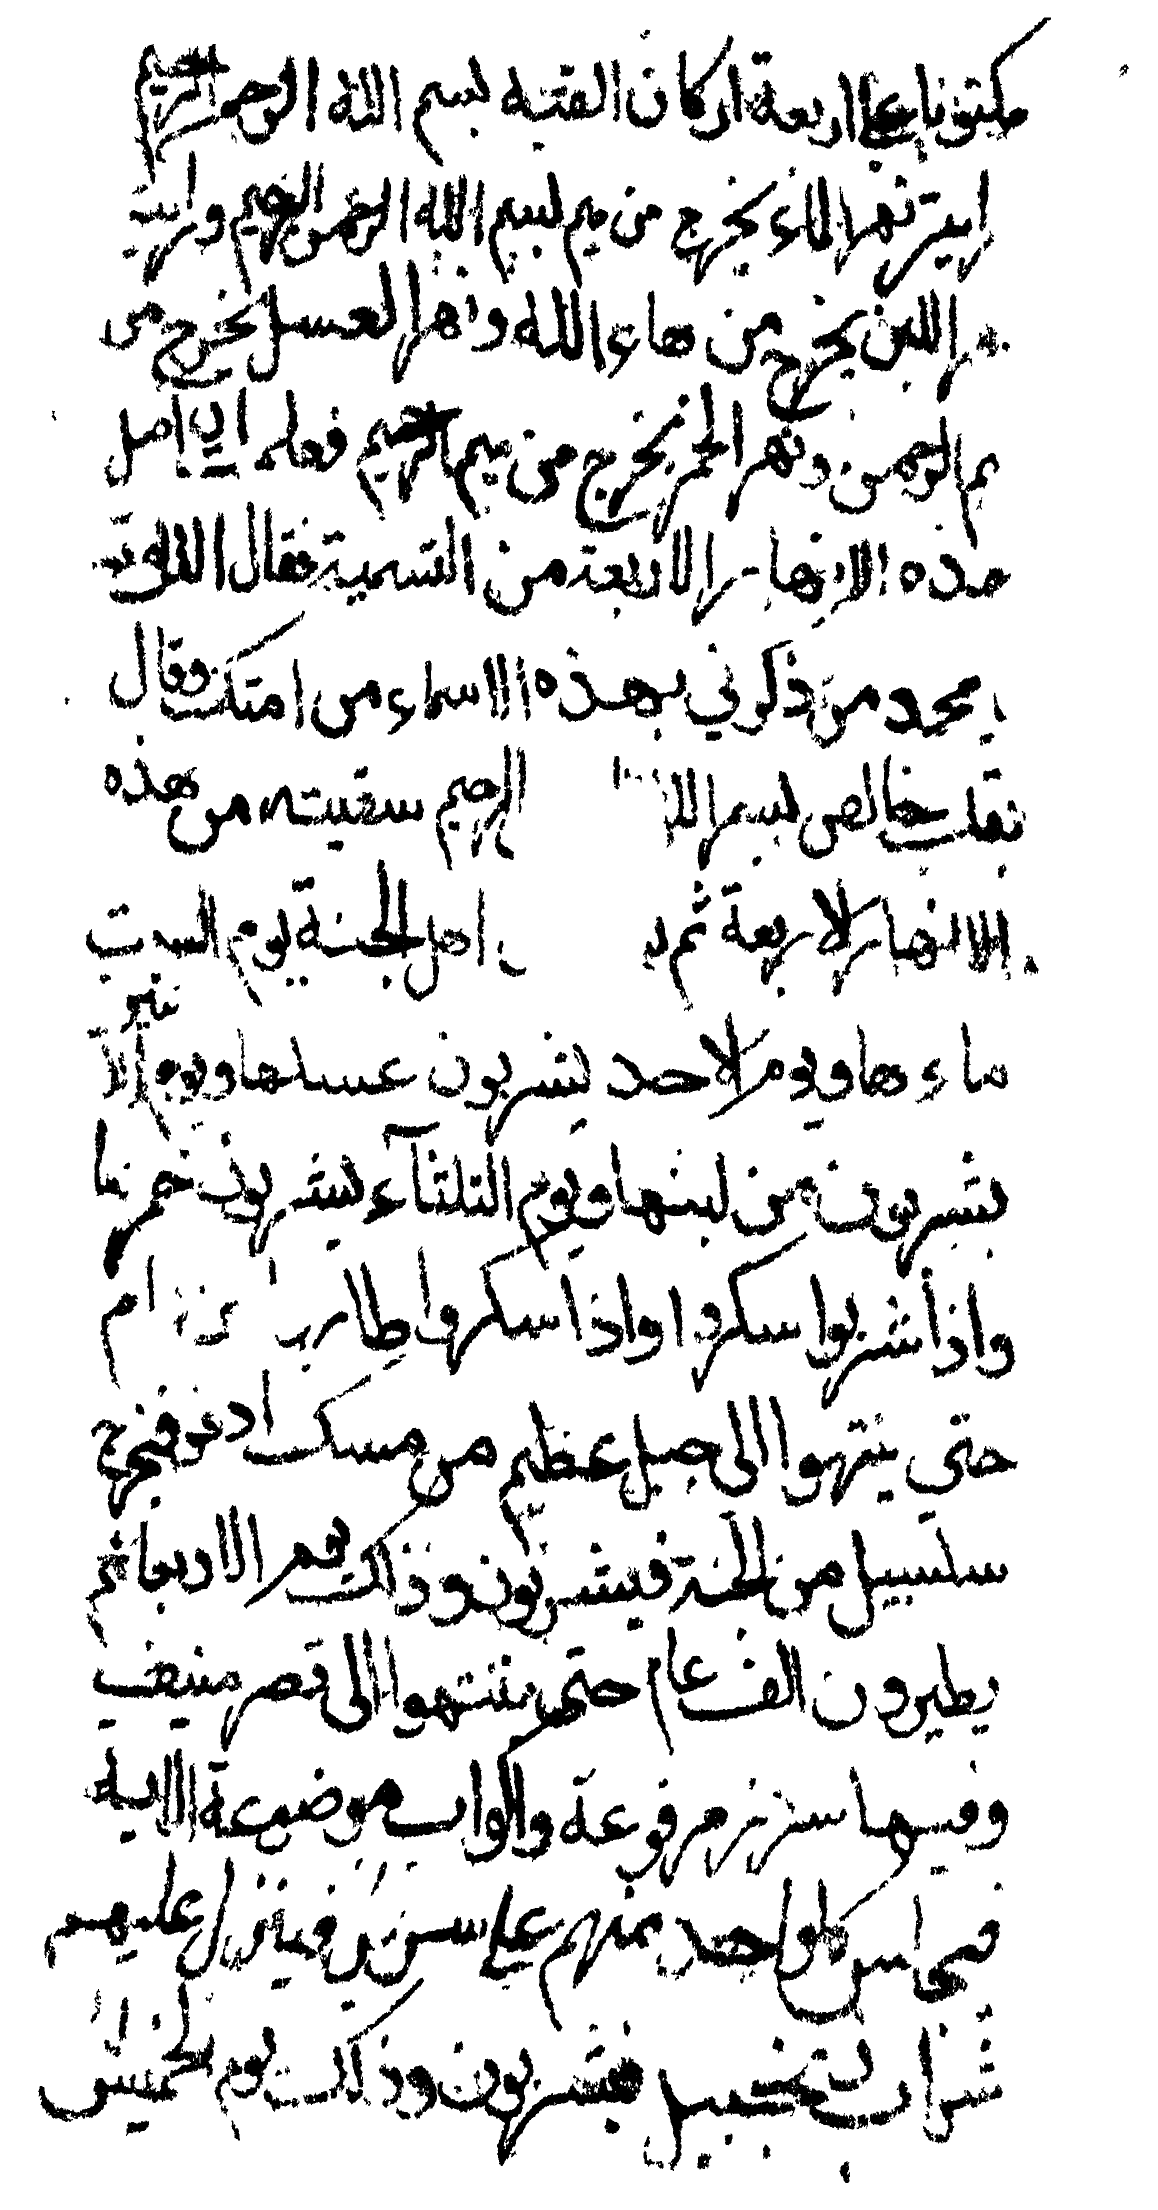 مكتوبا على اربعة اركان القبة بسم الله الرحمن الرحيم
رايت نهر الماء يخرج من ميم بسم الله الرحمن الرحيم ورايت
نهر اللبن يخرج من هاء الله ونهر العسل يخرج من
ميم الرحمن ونهر الخمر يخرج من ميم الرحيم فعلمت ان اصل
هذه الانهار الاربعة من التسمية فقال الله تعالى
يا محمد من ذكرني بهذه الاسماء من امتك وقال
بقلب خالص بسم الله الرحيم سقيته من هذه
الانهار الاربعة ثم اهل الجنة يوم السبت
ماءها ويوم الاحد يشربون عسلها ويوم الاثنين
يشربون من لبنها ويوم الثلثآء يشربون خمرها
واذا شربوا سكروا واذا سكروا طاروا عام
حتى ينتهوا الى جبل عظيم من مسك اذفر فيخرج
سلسبيل من الجنة فيشربون وذلك يوم الاربعا ثم
يطيرون الف عام حتى ينتهوا الى قصر منيف
وفيها سرر مرفوعة واكواب موضوعة الاية
فيجلس كل واحد منهم على سرير فينزل عليهم
شراب زنجبيل فيشربون وذلك يوم الخميس